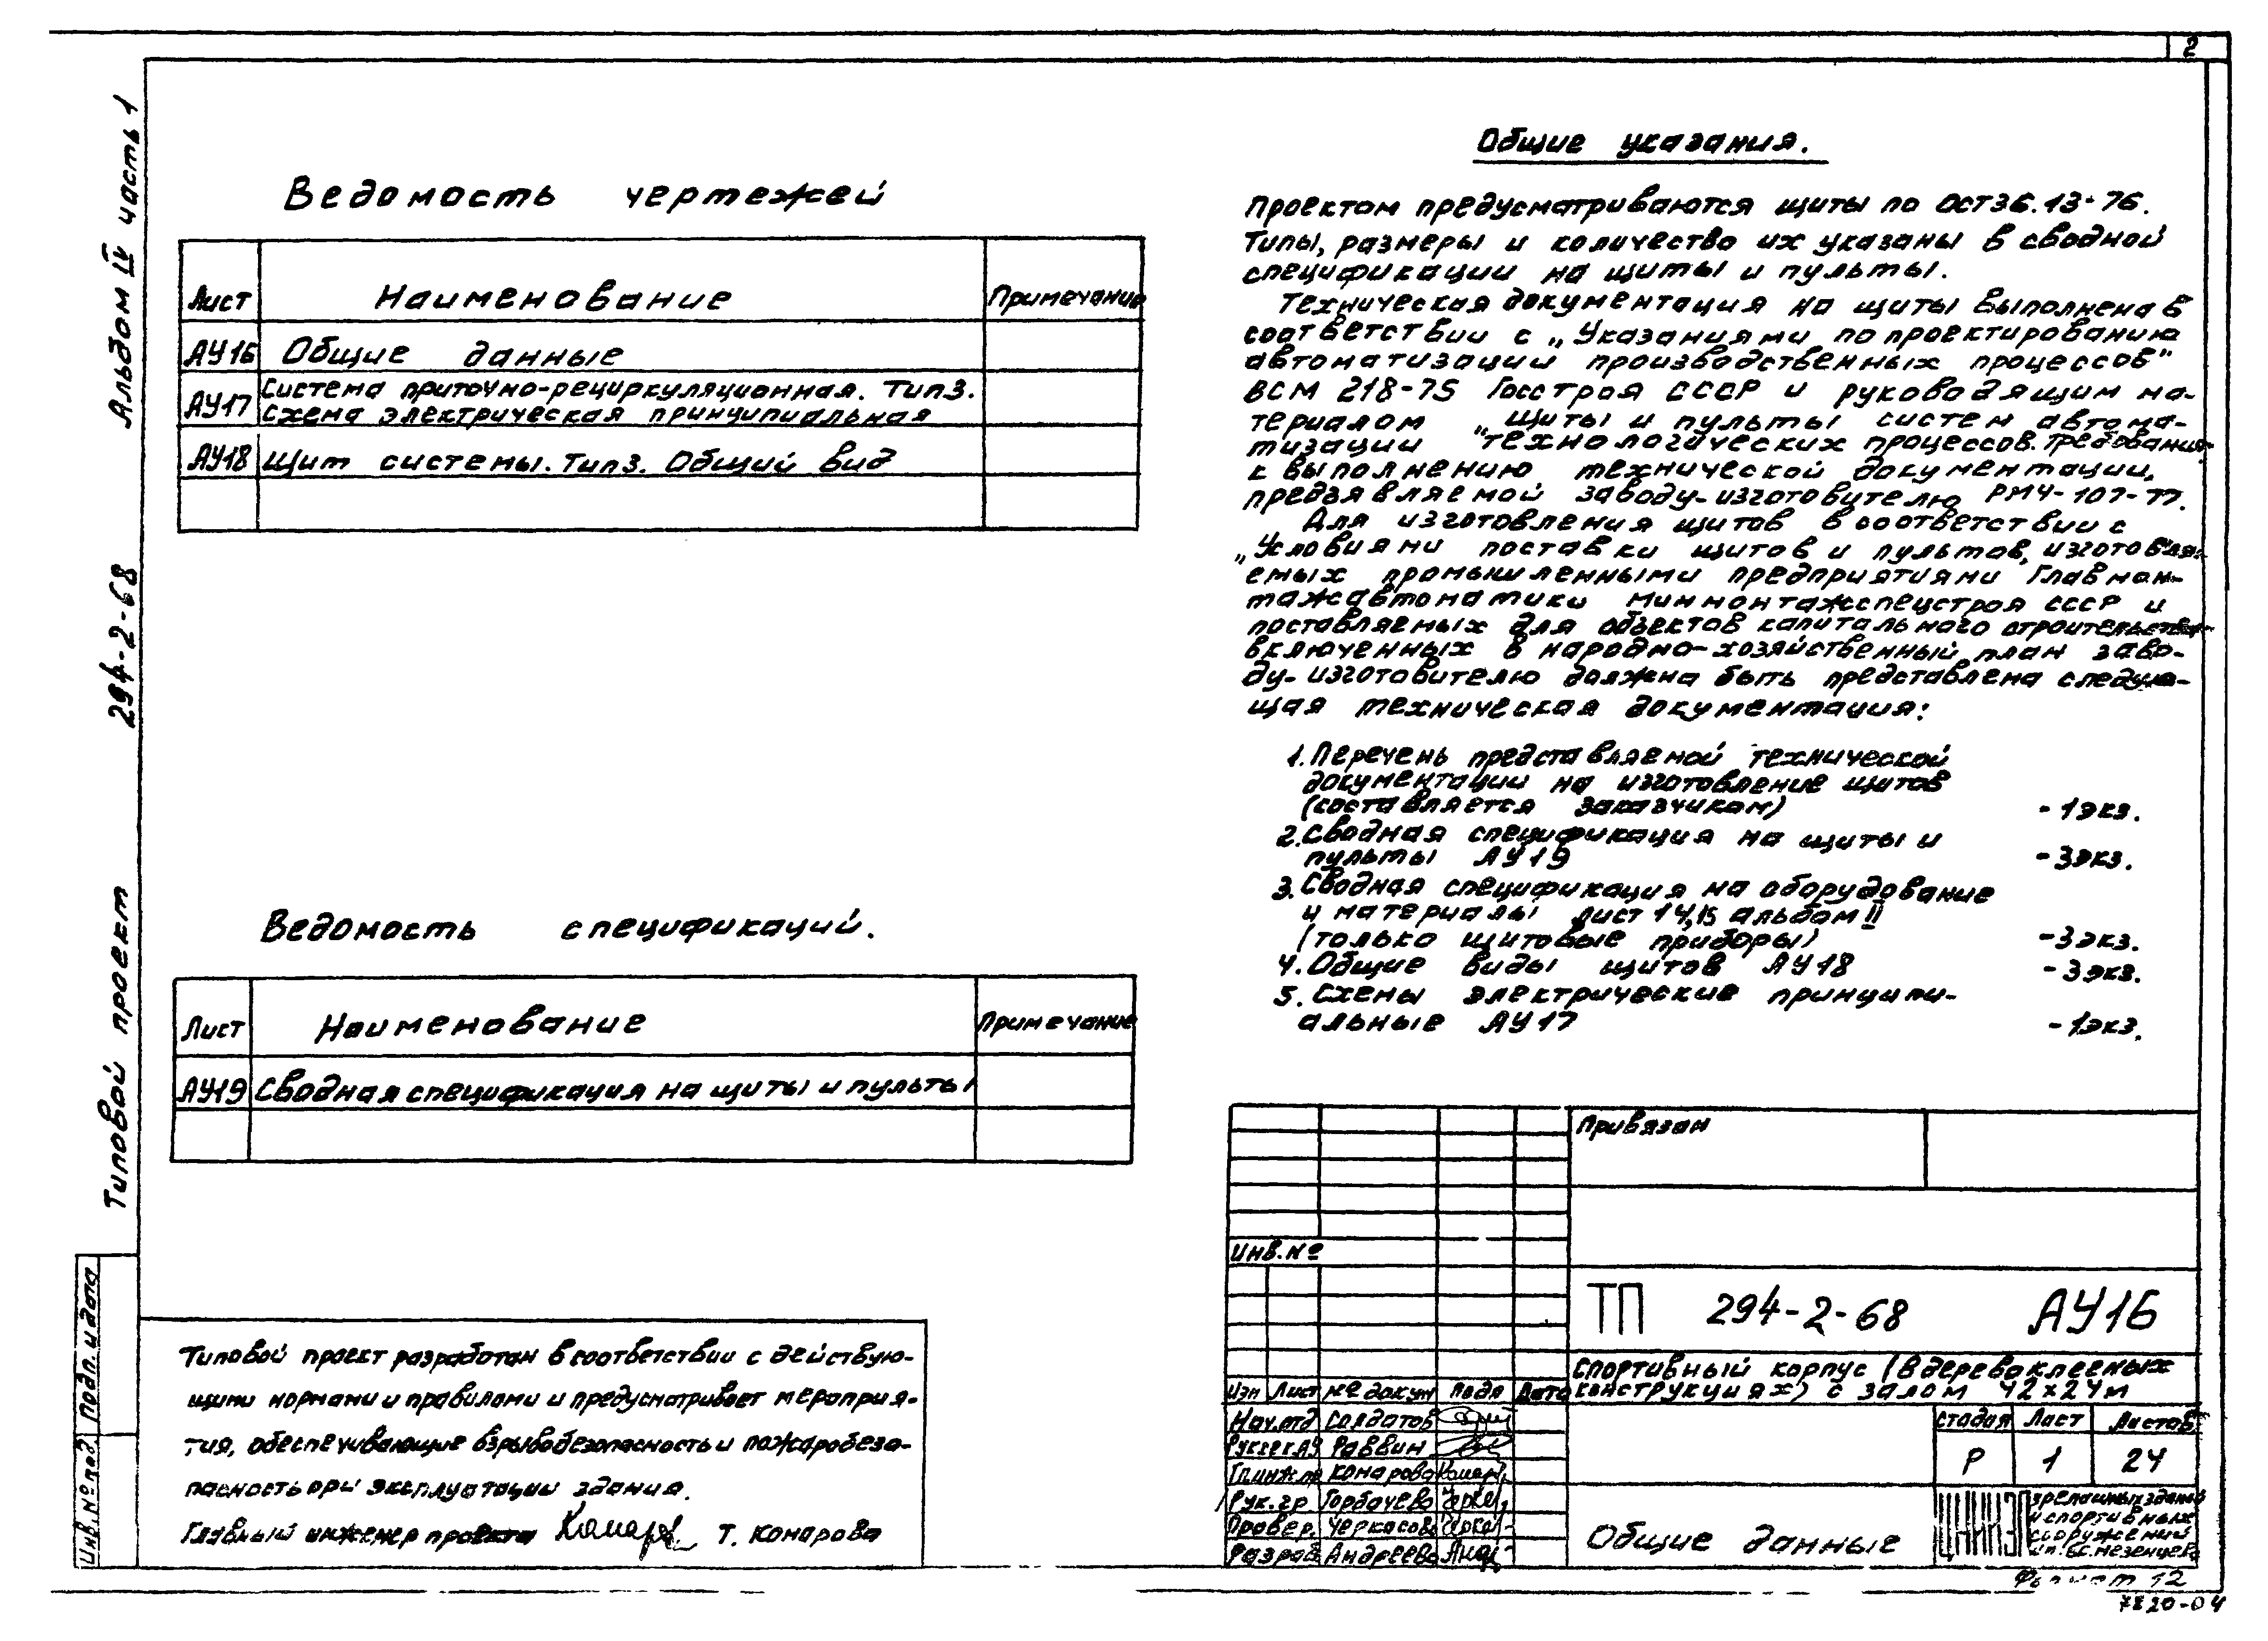 2
Альбом IV часть 1
294-2-68
Типовой проект
Ведомость чертежей
Лист Наименование Примечание
АУ16 Общие данные
АУ17 Система приточно-рециркуляционная. Тип 3.
Схема электрическая принципиальная
АУ18 Щит системы. Тип 3. Общий вид
Ведомость спецификаций.
Лист Наименование Примечание
АУ19 Сводная спецификация на щиты и пульты
Типовой проект разработан в соответствии с действую-
щими нормами и правилами и предусматривает мероприя-
тия, обеспечивающие взрывобезопасность и пожаробезо-
пасность при эксплуатации здания.
Главный инженер проекта Комарова Т. Комарова
Подп. и дата
Инв. № подл
Общие указания.
Проектом предусматриваются щиты по ОСТ 36.13-76.
Типы, размеры и количество их указаны в сводной
спецификации на щиты и пульты.
Техническая документация на щиты выполнена в
соответствии с „Указаниями по проектированию
автоматизации производственных процессов"
ВСМ 218-75 Госстроя СССР и руководящим ма-
териалом „щиты и пульты систем автома-
тизации технологических процессов. Требования
к выполнению технической документации,
предъявляемой заводу-изготовителю РМ4-107-77.
Для изготовления щитов в соответствии с
„Условиями поставки щитов и пультов, изготовля-
емых промышленными предприятиями Главмон-
тажавтоматики Минмонтажспецстроя СССР и
поставляемых для объектов капитального строительства
включенных в народно-хозяйственный план заво-
ду-изготовителю должна быть представлена следую-
щая техническая документация:
1. Перечень представляемой технической
документации на изготовление щитов
(составляется заказчиком) - 1 экз.
2. Сводная спецификация на щиты и
пульты АУ19 - 3 экз.
3. Сводная спецификация на оборудование
и материалы лист 14,15 альбом II
(только щитовые приборы) - 3 экз.
4. Общие виды щитов АУ18 - 3 экз.
5. Схемы электрические принципи-
альные АУ17 - 1 экз.
Привязан
Инв. №
ТП 294-2-68 АУ16
Спортивный корпус (в деревоклееных
конструкциях) с залом 42х24м
Изм Лист № докум Подп Дата
Нач. отд Солдатов
Рук сек. АУ Раввин
Гл инж пр Комарова
Рук. гр Горбачева
Провер. Черкасова
Разраб Андреева
Стадия Лист Листов
Р 1 24
Общие данные
ЦНИИЭП зрелищных зданий
и спортивных
сооружений
им. Б.С. Мезенцева
Формат 12
7820-04